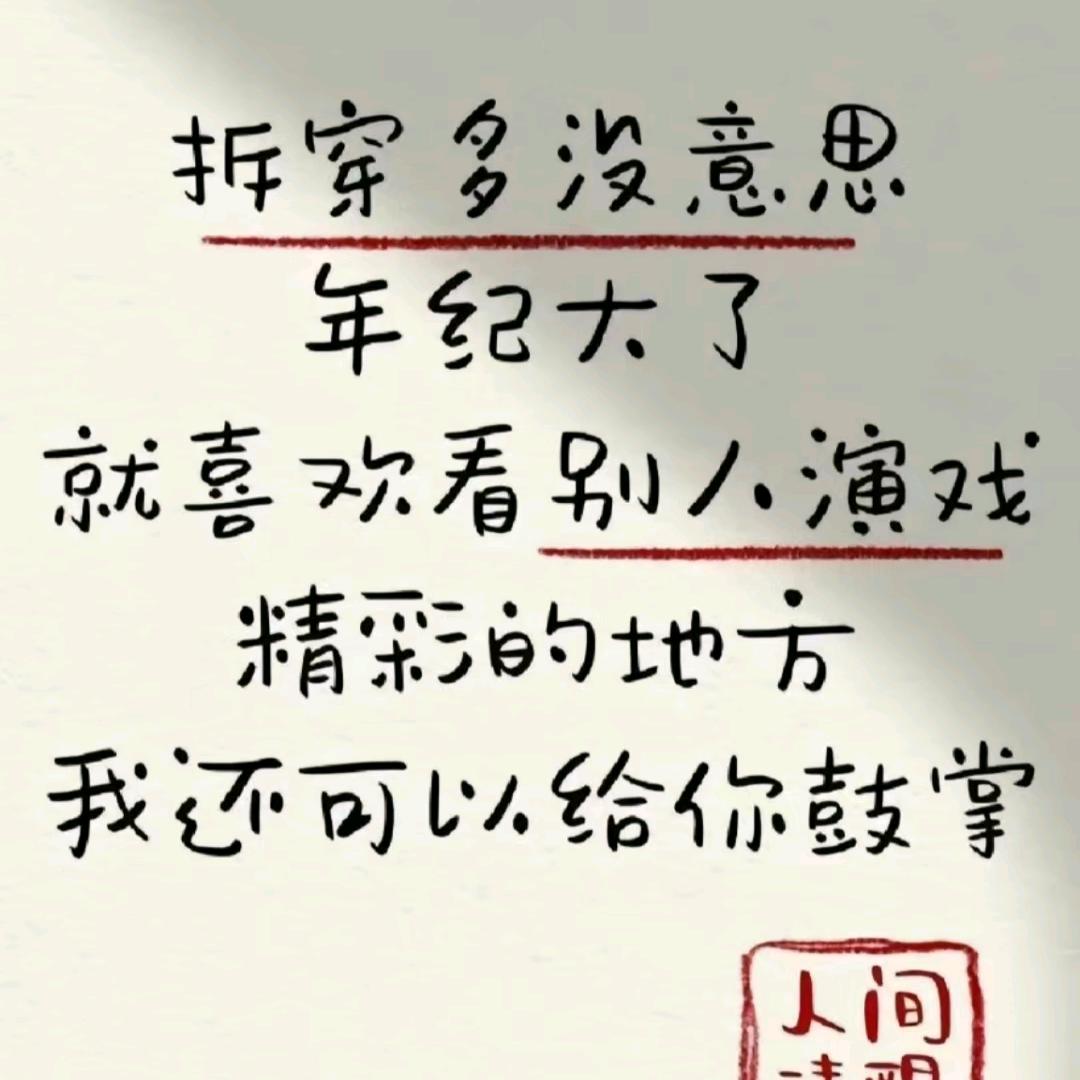 拆穿多没意思
年纪大了
就喜欢看别人演戏
精彩的地方
我还可以给你鼓掌
人间